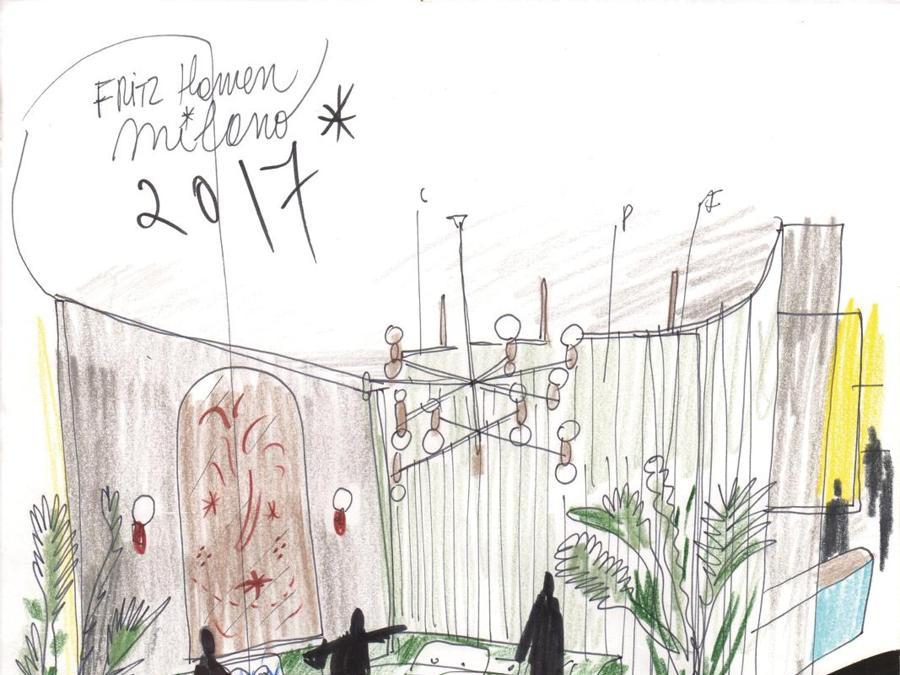 FRITZ Hansen
Milano *
2017
P